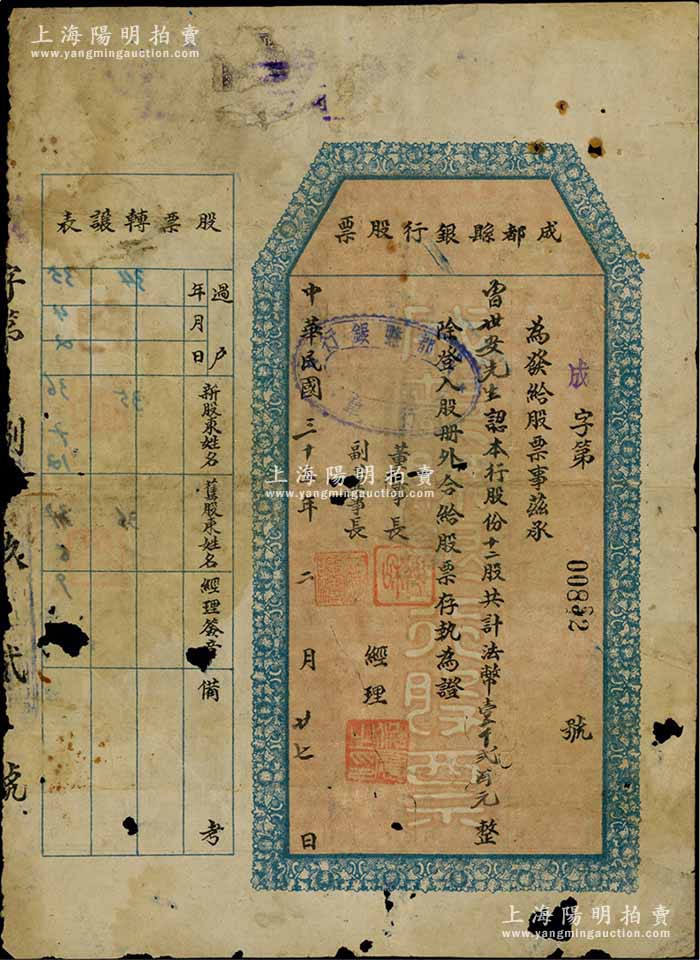 上海陽明拍賣
www.yangmingauction.com
成都縣銀行股票
成字第00852號
為發給股票事茲承
先生認本行股份十二股共計法幣壹千弍百元整
除登入股册外合給股票存執為證
董事長
副董事長
經理
中華民國三十 年二月廿七日
都縣銀行
股票轉讓表
過戶
年月日
新股東姓名
舊股東姓名
經理簽章
備考
34
35
36
35
36
字第
號
上海陽明拍賣
www.yangmingauction.com
上海陽明拍賣
www.yangmingauction.com